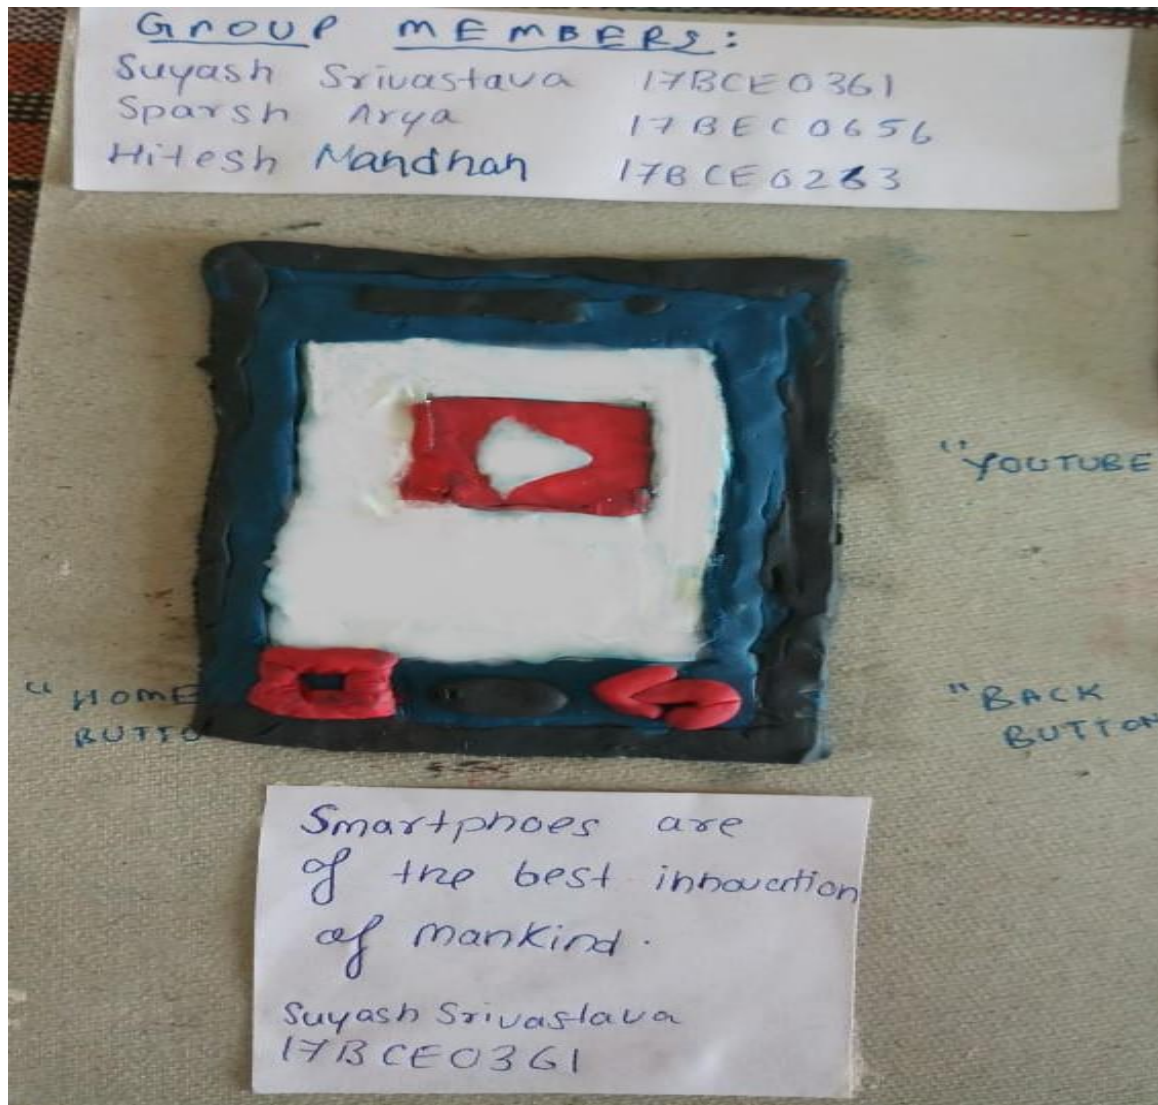 GROUP MEMBERS:
Suyash Srivastava 17BCE0361
Sparsh Arya 17BEC0656
Hitesh Mandhan 17BCE0263
"YOUTUBE
"HOME
BUTTO
"BACK
BUTTON
Smartphoes are
of the best innovation
of mankind.
Suyash Srivastava
17BCE0361